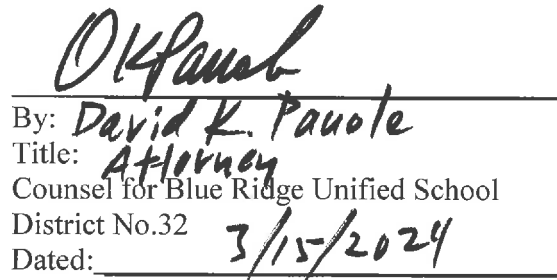 By: David K. Pauole
Title: Attorney
Counsel for Blue Ridge Unified School
District No.32
Dated: 3/15/2024